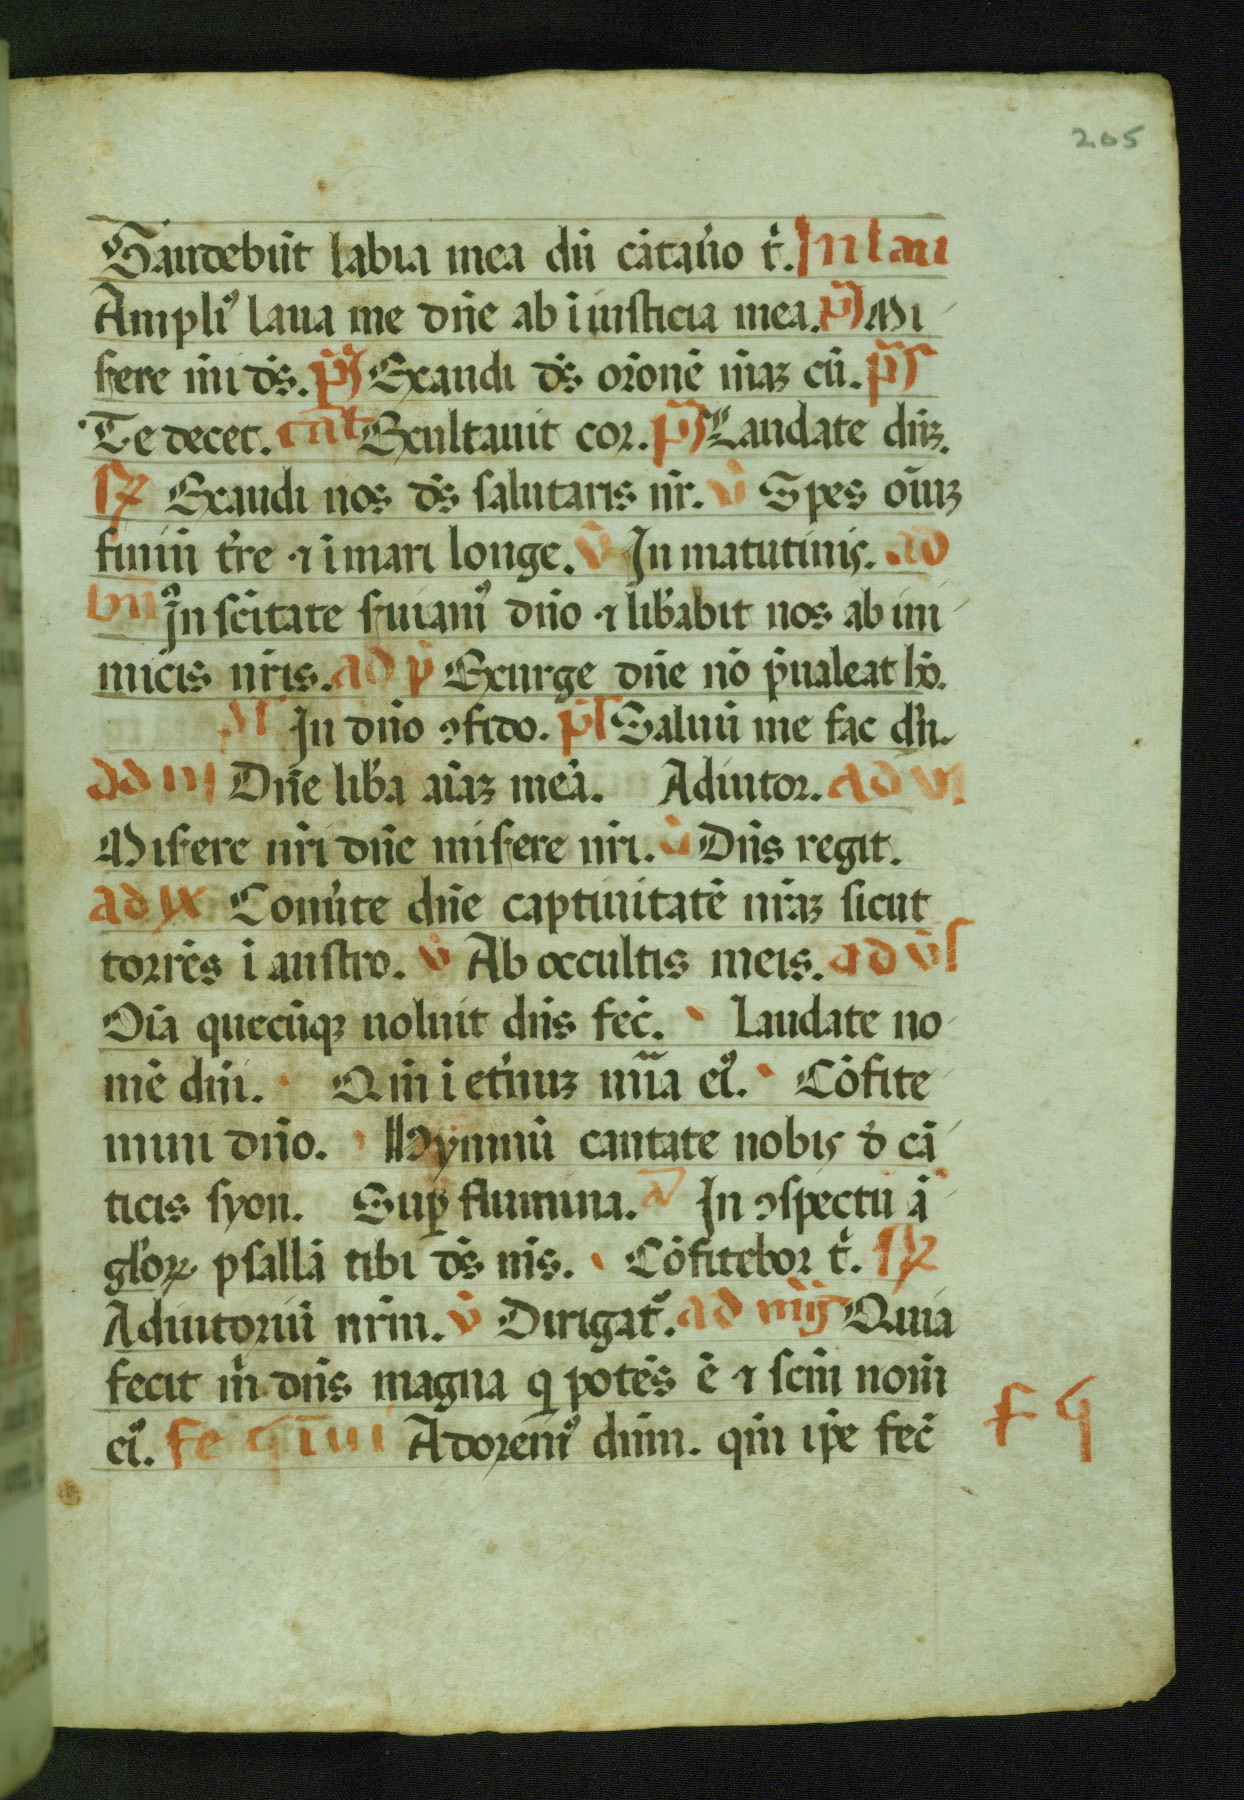 205
Gaudebūt labia mea dū cātau̇o t̉. In lau
Ampliꝰ laua me dn̄e ab īiusticia mea. p̄s Mi
sere mī ds̄. p̄s Exaudi ds̄ or̄onē m̄aꝫ cū. p̄s
Te decet. cāt Exultauit cor. p̄s Laudate dn̄ꝫ.
ꝶ Exaudi nos ds̄ salutaris nr̄. v̉ Spes oīuꝫ
finiū tr̄e ⁊ ī mari longe. v̉ In matutinis. ad
bn̄ In sc̄itate ẜuiamꝰ dn̄o ⁊ lib̄abit nos ab ini
micis nr̄is. ad p̉ Exurge dn̄e nō p̄ualeat hō.
In dn̄o ꝯfido. p̄s Saluū me fac dn̄.
ad iii Dn̄e lib̄a aīaꝫ meā. Adiutor. ad vi
Misere nr̄i dn̄e misere nr̄i. v̉ Dn̄s regit.
ad ix Conūte dn̄e captiuitatē nr̄aꝫ sicut
torrēs ī austro. v̉ Ab occultis meis. ad v̄s
Oīa quecūqꝫ uoluit dn̄s fec̄. Laudate no
mē dn̄i. Qm̄ ī et̄nuꝫ mīa eiꝰ. Cōfite
mini dn̄o. Hymnū cantate nobis d̄ cā
ticis syon. Suꝑ flumina. a In ꝯspectu ā
gl̄oꝝ psallā tibi ds̄ ms̄. Cōfitebor t̉. ꝶ
Adiutoriū nr̄m. v̉ Dirigat̉. ad mͣg Quia
fecit m̉ dn̄s magna q potēs ē ⁊ sc̄m nom̄
eiꝰ. fe q̄i ui Adoremꝰ dn̄m. qm̄ ip̄e fec̄
f q